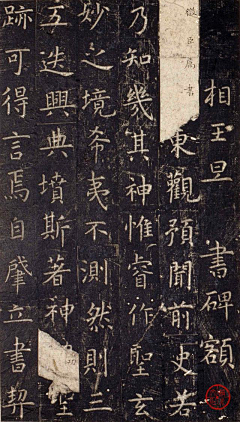 相王旦 書碑額
微臣屬書
東觀預聞前史若
乃知幾其神惟睿作聖玄
妙之境希夷不測然則三
五迭興典墳斯著神聖
跡可得言焉自肇立書契